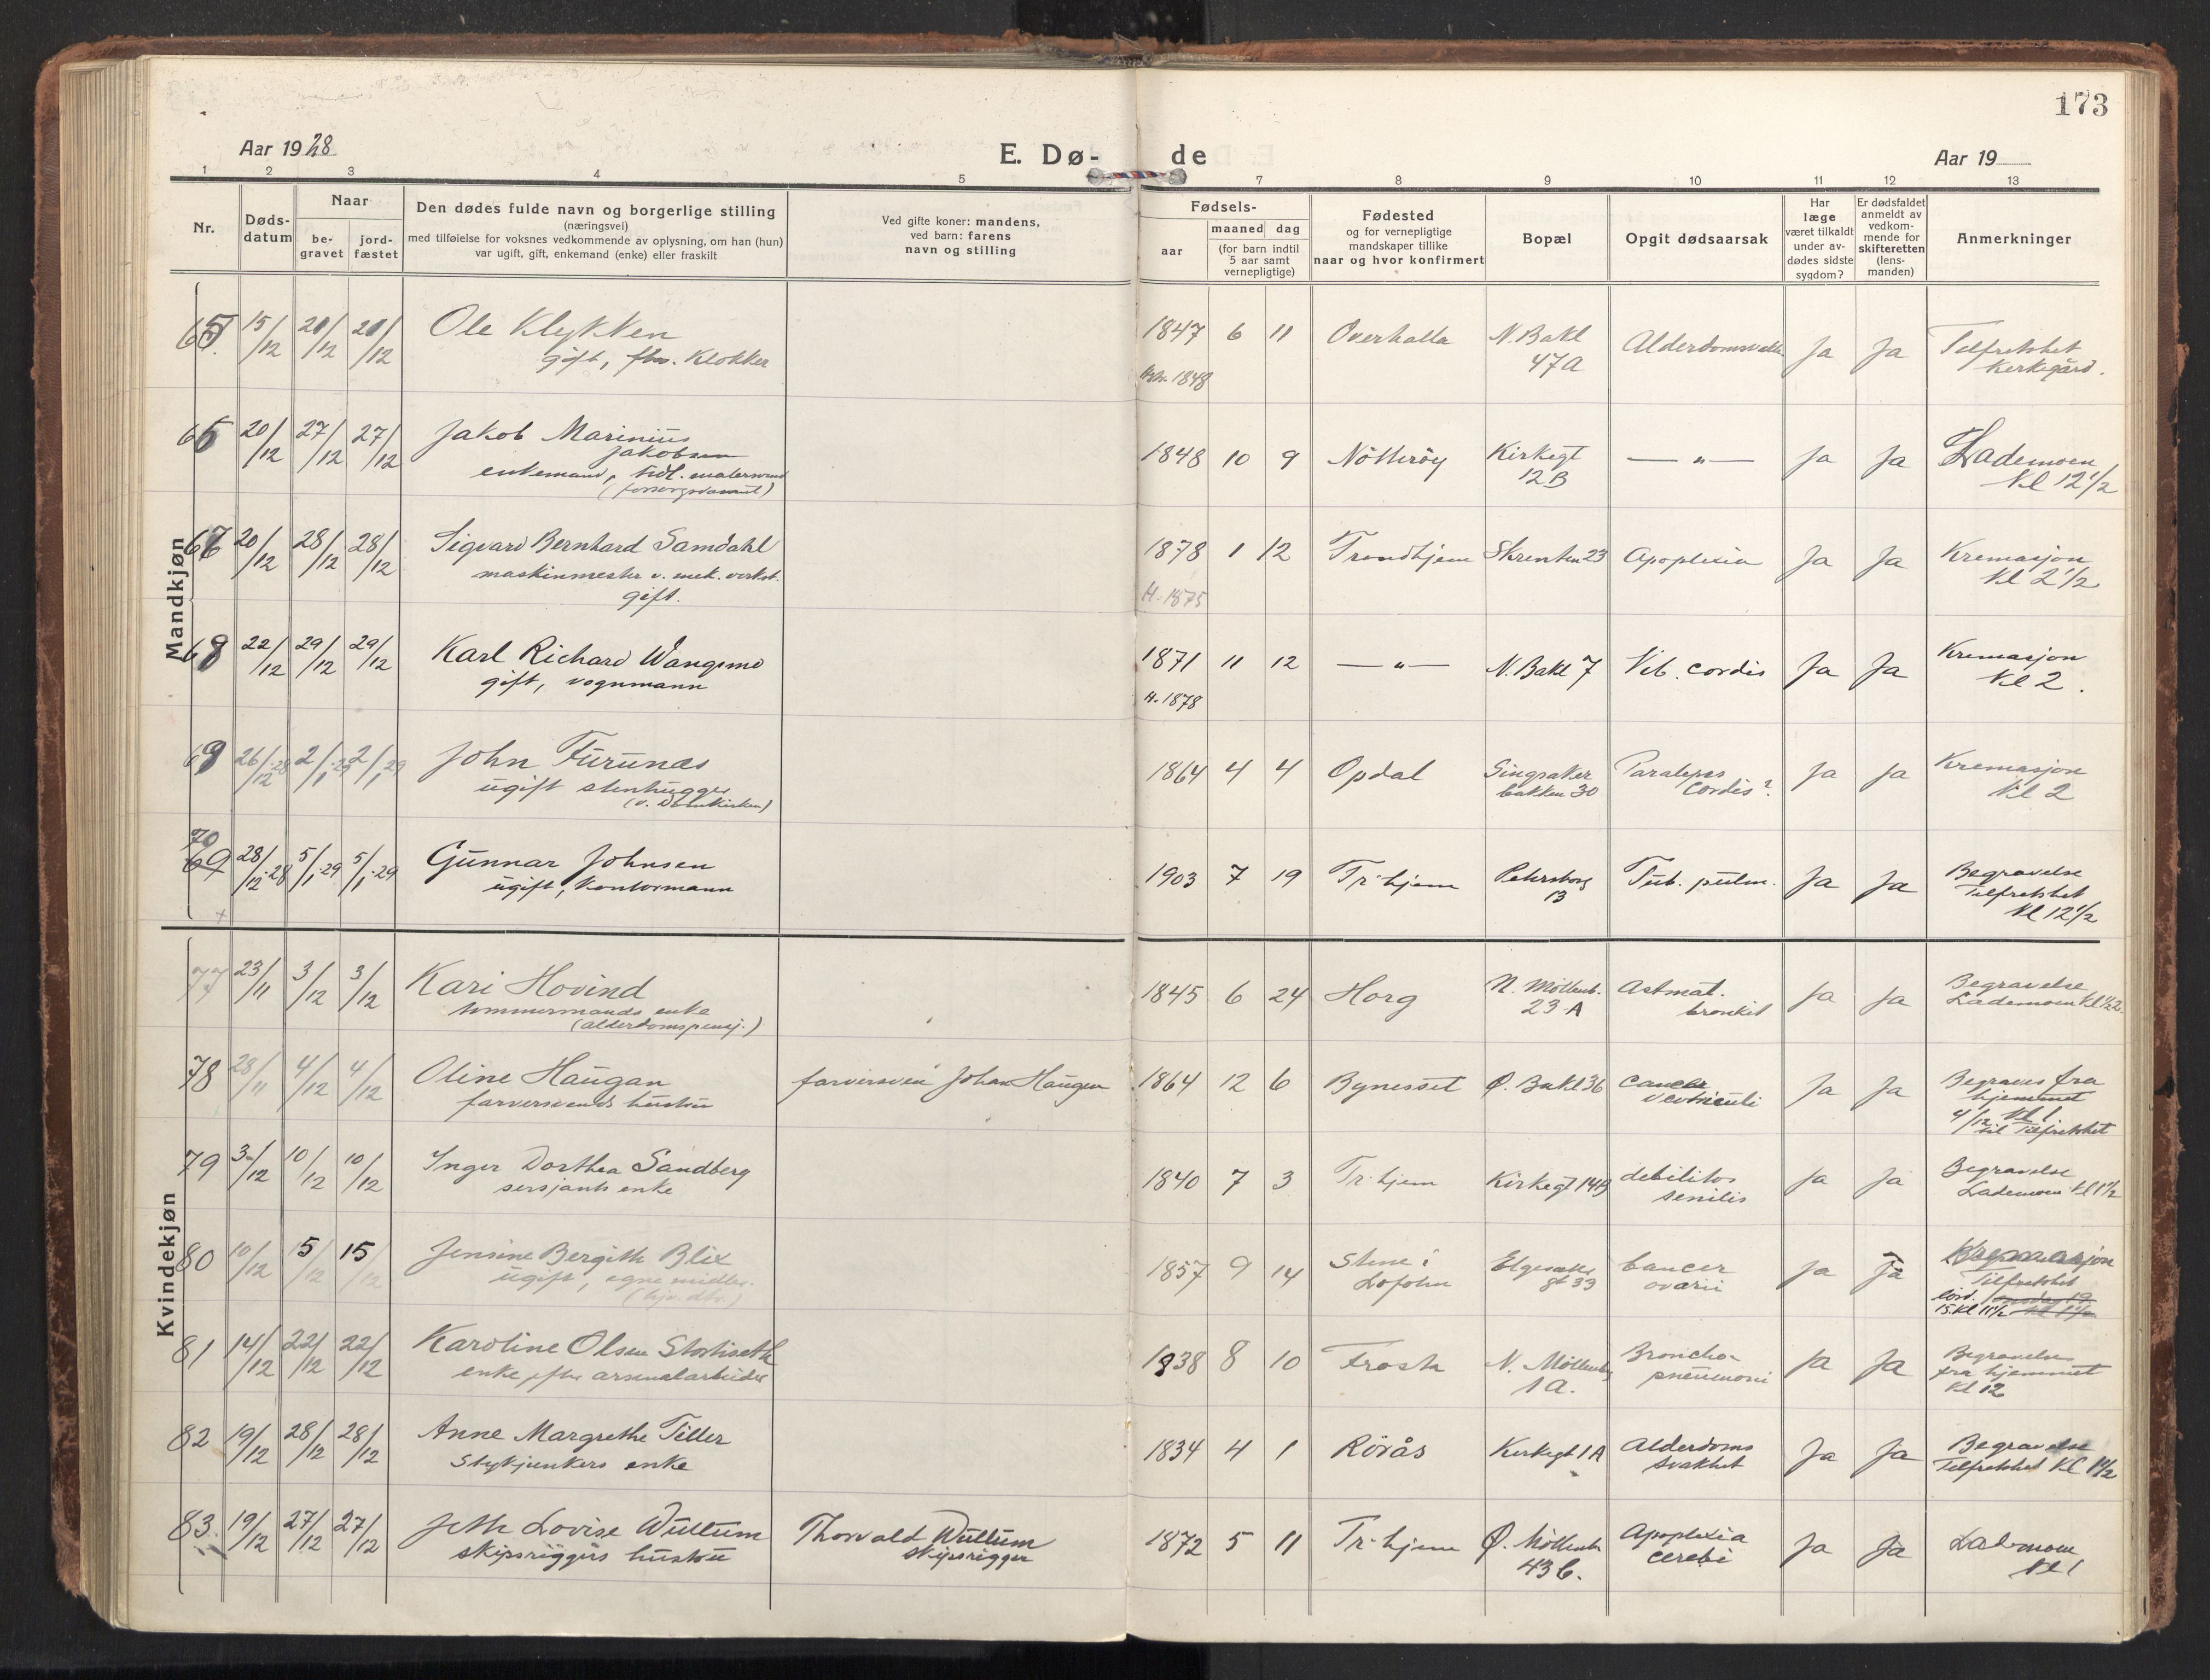 173
Aar 1928
E. Dø-
de
Aar 19
1 2 3 4 5 7 8 9 10 11 12 13
Nr.
Døds-
datum
Naar
be-
gravet
jord-
fæstet
Den dødes fulde navn og borgerlige stilling
(næringsvei)
med tilføielse for voksnes vedkommende av oplysning, om han (hun)
var ugift, gift, enkemand (enke) eller fraskilt
Ved gifte koner: mandens,
ved barn: farens
navn og stilling
Fødsels-
aar
maaned dag
(for barn indtil
5 aar samt
vernepligtige)
Fødested
og for vernepligtige
mandskaper tillike
naar og hvor konfirmert
Bopæl
Opgit dødsaarsak
Har
læge
været tilkaldt
under av-
dødes sidste
sygdom?
Er dødsfaldet
anmeldt av
vedkom-
mende for
skifteretten
(lens-
manden)
Anmerkninger
Mandkjøn
65 15/12 20/12 20/12 Ole Klykken 1847 6 11 Overhalla N. Bakl Ja Ja Tilfretshet
gift, fhv. Klokker 1848 47A Kirkegård.
66 20/12 27/12 27/12 Jakob Marinius 1848 10 9 Nötteröy Kirkegt — " — Ja Ja Lademoen
Jakobsen 12B Kl 12 1/2
enkemand, tidl. malersvend
67 20/12 28/12 28/12 Sigvard Bernhard Samdahl 1878 1 12 Trondhjem Skrenten 23 Apoplexia Ja Ja Kremasjon
maskinmester v. mek. verkst. Kl 2 1/2
gift. H. 1875
68 22/12 29/12 29/12 Karl Richard Wangsmo 1871 11 12 — " — N. Bakl 7 Vit. cordis Ja Ja Kremasjon
gift, vognmann H. 1878 Kl 2.
69 26/12-28 2/1-29 2/1-29 John Furunæs 1864 4 4 Opdal Singsaker Cordis? Ja Ja Kremasjon
ugift stenhugger bakken 30 Kl 2
(v. Domkirken)
70
69 28/12-28 5/1-29 5/1-29 Gunnar Johnsen 1903 7 19 Tr.hjem 13 Tub. pulm. Ja Ja Begravelse
ugift, Kontormann Tilfretshet
Kl 12 1/2
Kvindekjøn
77 23/11 3/12 3/12 Kari Hovind 1845 6 24 Horg N. Möllenb. Astmat. Ja Ja Begravelse
tømmermands enke 23 A bronkit Lademoen
(alderdomspensj.)
78 28/11 4/12 4/12 Oline Haugan farversven Johan Haugan 1864 12 6 Bynesset Ø. Bakl 36 cancer Ja Ja Begraves fra
farversvends hustru ventriculi hjemmet
4/12 Kl 1
til Tilfretshet
79 3/12 10/12 10/12 Inger Dorthea Sandberg 1840 7 3 Tr.hjem Kirkegt 14B debilitas Ja Ja Begravelse
sersjants enke senilis Lademoen Kl 1 1/2
80 10/12 15/12 15/12 Jensine Bergith Blix 1857 9 14 Stene i Elgesæter Cancer Ja Ja Kremasjon
ugift, egne midler. Lofoten gt 33 ovarii Tilfretshet
lörd.
15. Kl 11 1/2
81 14/12 22/12 22/12 Karoline Olsen Stortiseth 1838 8 10 Frosta N. Möllenb Broncho- Ja Ja Begravelse
enke efter arsenalarbeider 1a. pneumoni fra hjemmet
Kl 12
82 19/12 28/12 28/12 Anne Margrethe Tiller 1834 4 1 Rörås Kirkegt 1A Alderdoms Ja Ja Begravelse
Stykjunkers enke svakhet Tilfretshet Kl 1 1/2
83. 19/12 27/12 27/12 Lovise Wullum Thorvald Wullum 1872 5 11 Tr.hjem Ø. Möllenb Apoplexia Ja Ja Lademoen
skipsriggers hustru skipsrigger 43 b. cerebi Kl 1